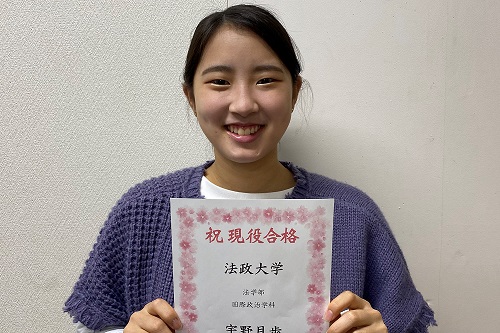 祝 現役合格
法政大学
法学部
国際政治学科
宇野月歩